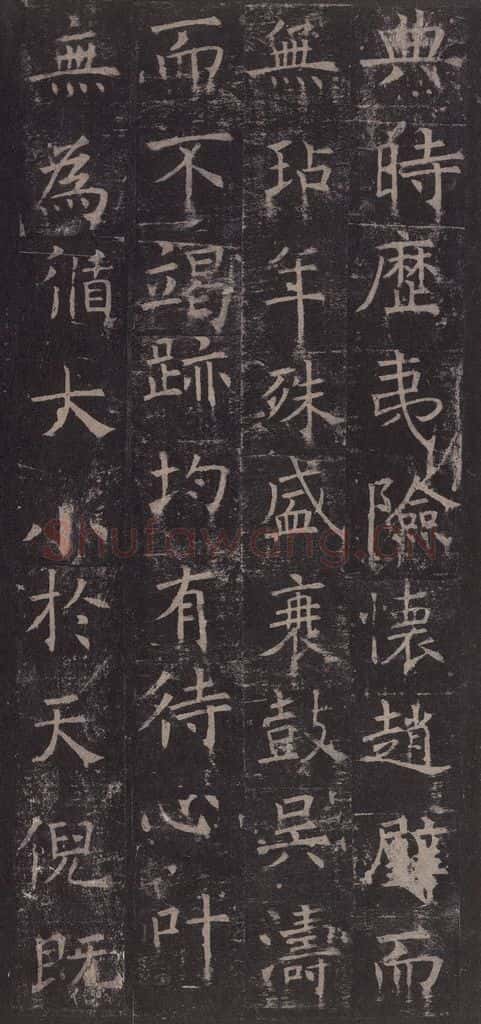 典時歷夷險懷趙璧而
無玷年殊盛衰鼓吳濤
而不竭跡均有待心叶
無為循大小於天倪既
Shufawang.CN